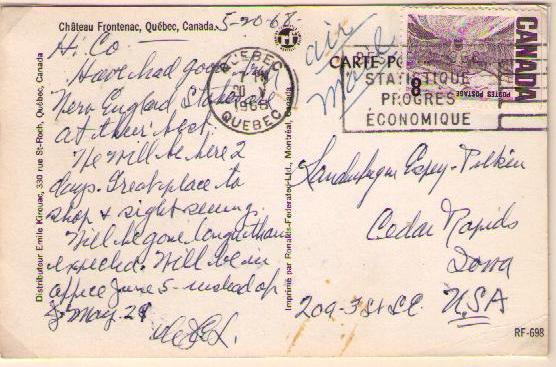 Château Frontenac, Québec, Canada.
5-20-68
Hi Co
Have had good
New England States
at their best.
We will be here 2
days. Great place to
shop & sight seeing.
Will be gone longer than
expected. Will be in
office June 5 - instead of
May 29
air
mail
CARTE-PO
QUEBEC
PM
20 V
1968
QUÉBEC
STATISTIQUE
PROGRÈS
ÉCONOMIQUE
CANADA
8
POSTES POSTAGE
Cedar Rapids
Iowa
209-3 St S.E. USA
Distributeur Emile Kirouac, 330 rue St-Roch, Québec, Canada
Imprimé par Ronalds-Federated Ltd., Montréal, Canada
RF-698